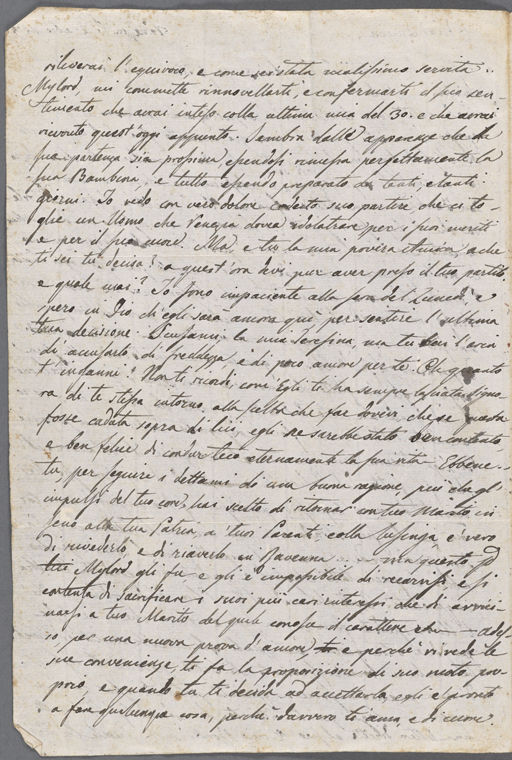 rileverai l'equivoco, e come sei stata malissimo servita..
Mylord, mi commette rinnovellarti, e confermarti il suo sen-
timento che avrai inteso colla ultima mia del 30. e che avrai
ricevuto quest'oggi appunto. Sembra dalle apparenze che la
sua partenza sia prossima, essendosi rimessa perfettamente la
sua Bambina, e tutto essendo preparato da tanti e tanti
giorni. Io vedo con vero dolore questo suo partire che ci to-
glie un Uomo, che Venezia dovea idolatrare per i suoi meriti
e per il suo cuore. Ma, e tu la mia povera Amica, a che
ti sei tu decisa? a quest'ora devi pur aver preso il tuo partito
e quale mai? Io sono impaciente alla sera del Lunedì, e
spero in Dio ch'egli sarà ancora qui per sentire l'ultima
tua decisione. Scusami, la mia Teresina, ma tu hai l'aria
di accusarlo di freddezza e di poco amore per te. Oh quanto
t'inganni! Non ti ricordi, come Egli te ha sempre lasciata Signo-
ra di te stessa intorno alla scelta che far dovevi che se questa
fosse caduta sopra di lui, egli ne sarebbe stato ben contento,
e ben felice di condur teco eternamente la sua vita. Ebbene..
tu, per seguire i dettami di una buona ragione, più che gl'
impulsi del tuo core, hai scelto di ritornar con tuo Marito, in
seno alla tua Patria, a' tuoi Parenti, colla lusinga è vero
di rivederlo, e di riaverlo in Ravenna... ma questo
Mylord gli fu, e gli è impossibile di recarvisi, e si
contenta di sacrificare i suoi più cari interessi, che di avvici-
narsi a tuo Marito del quale conosce il carattere — ades-
so per una nuova prova d'amore e perchè vi vede le
sue convenienze, te fa la proposizione di suo moto pro-
prio, e quando tu ti decida ad accettarla, egli è pronto
a far qualunque cosa, perchè davvero ti ama, e di cuore.